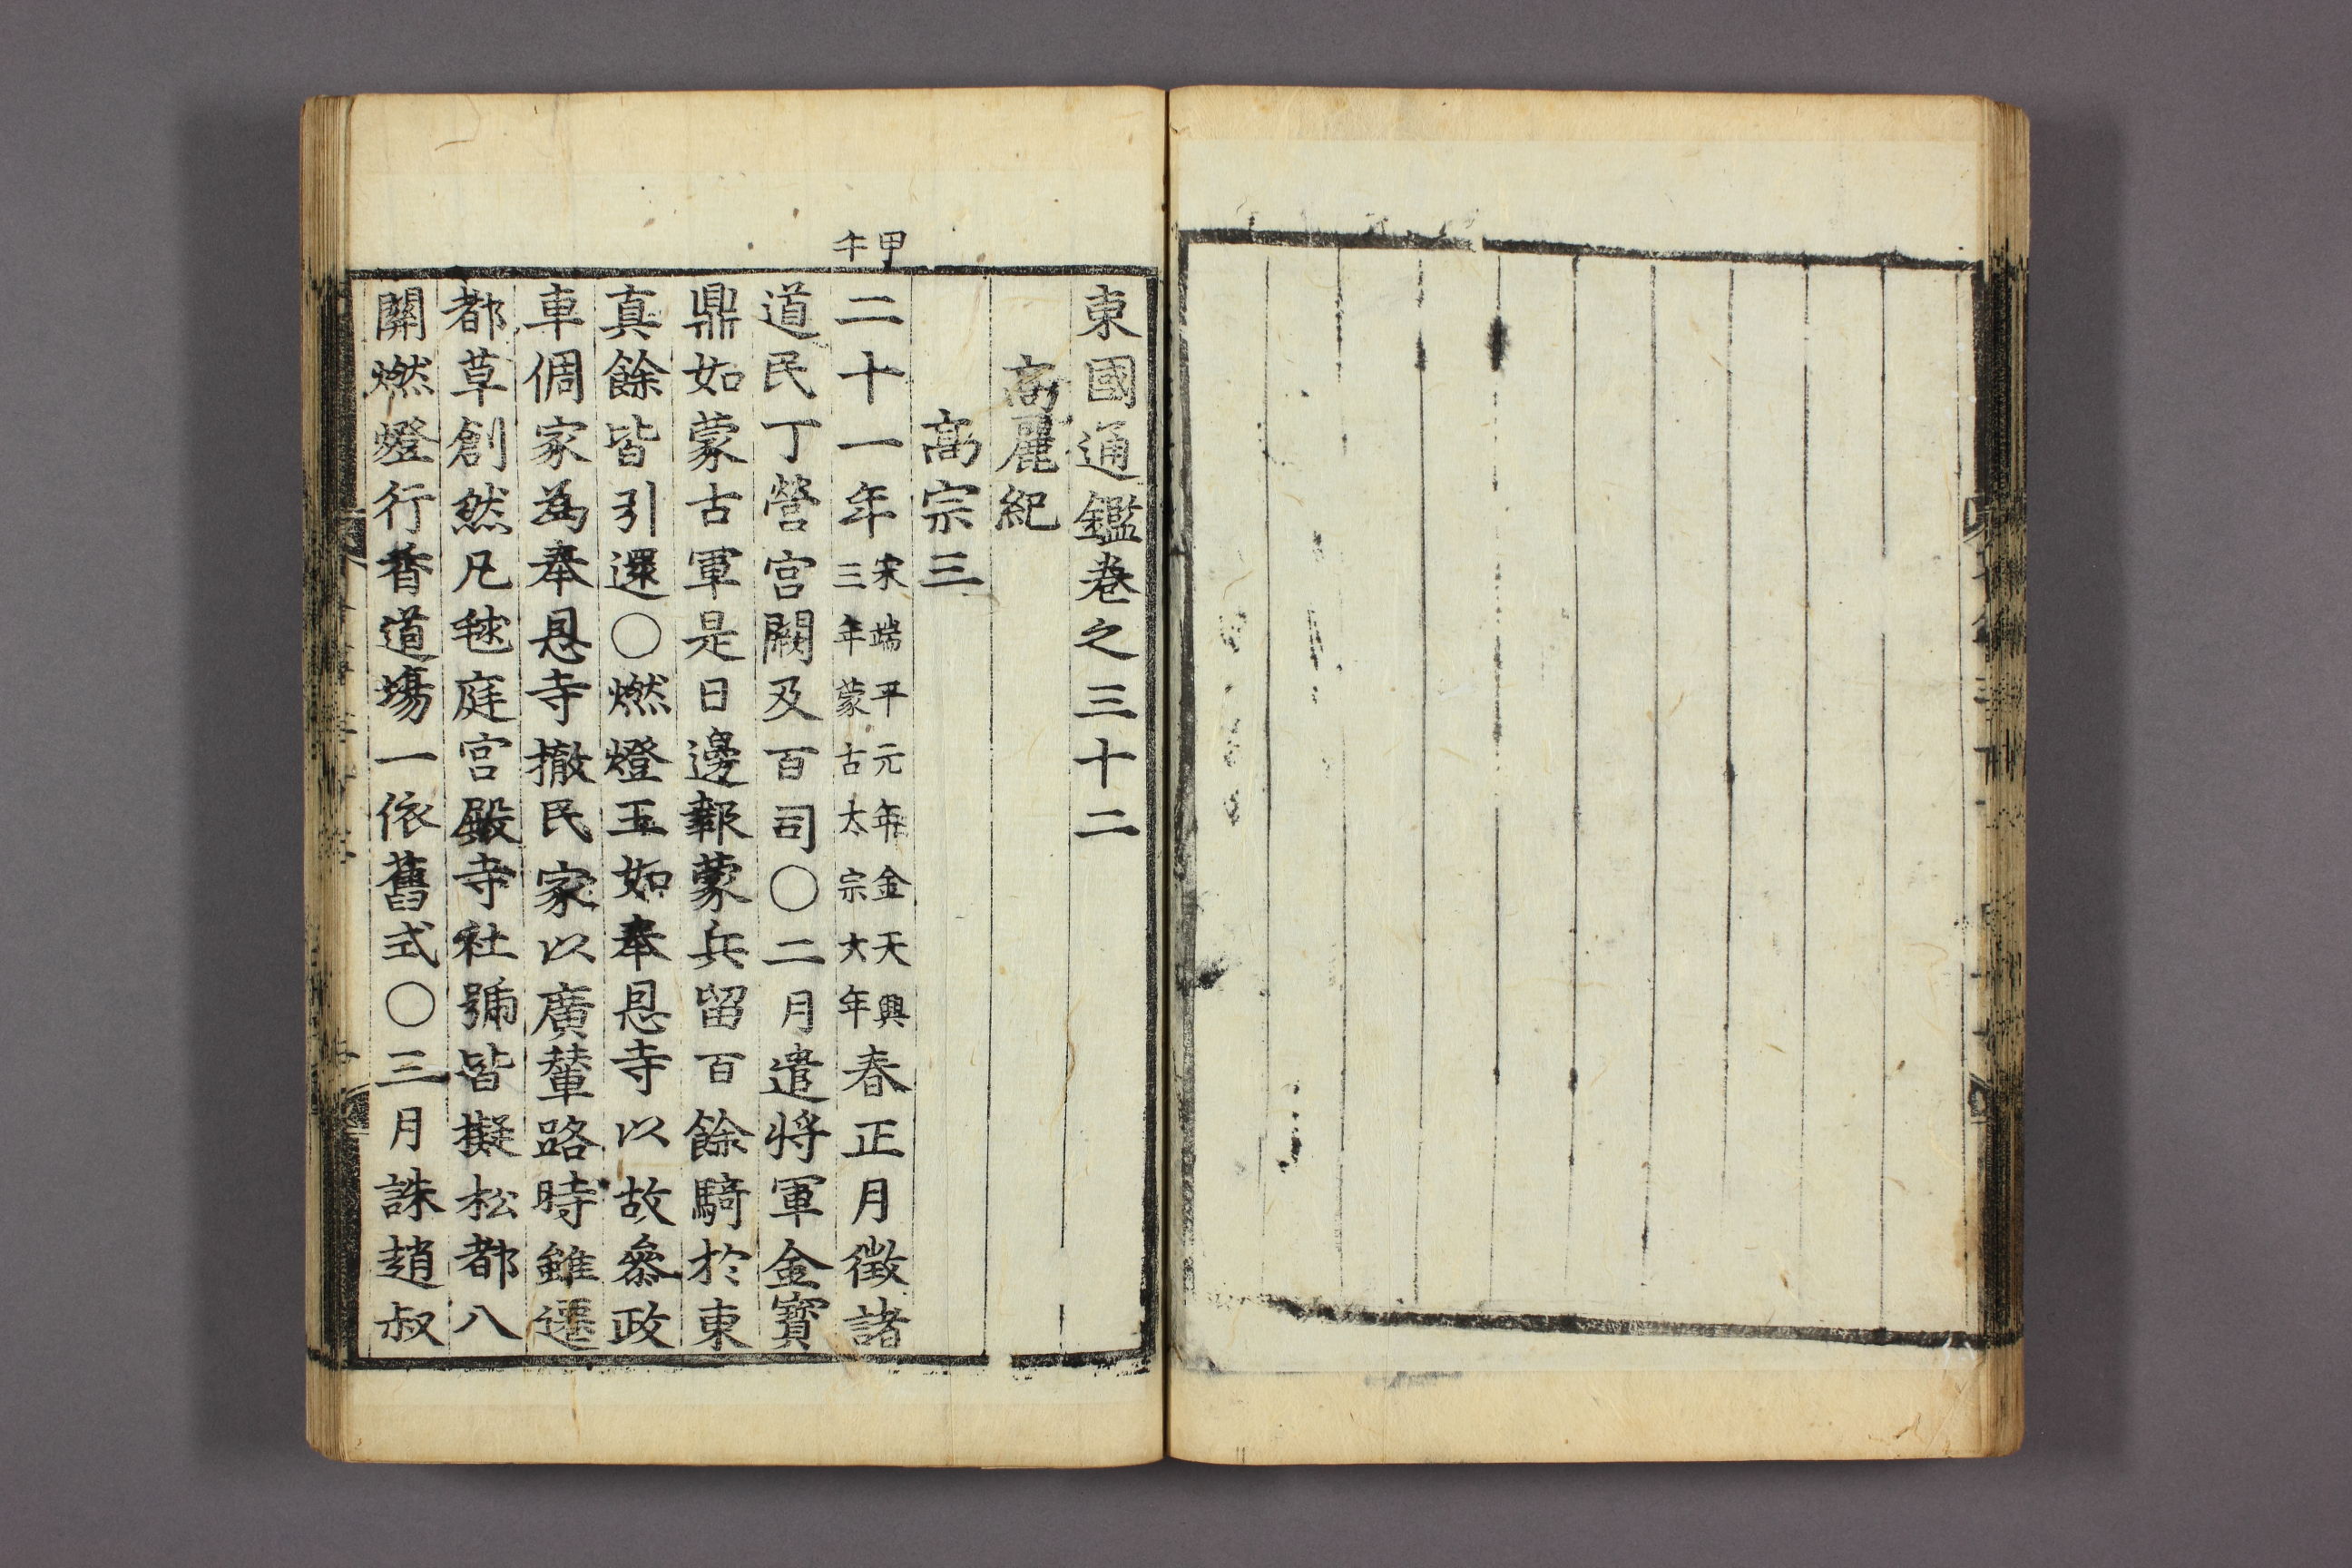 東國通鑑卷之三十二
高麗紀
高宗三
甲午
二十一年宋端平元年金天興三年蒙古太宗大年春正月徵諸
道民丁營宮闕及百司○二月遣將軍金寳
鼎如蒙古軍是日邊報蒙兵留百餘騎於東
真餘皆引還○燃燈王如奉恩寺以故叅政
車倜家為奉恩寺撤民家以廣輦路時雖遷
都草創然凡毬庭宮殿寺社號皆擬松都八
關燃燈行香道場一依舊式○三月誅趙叔